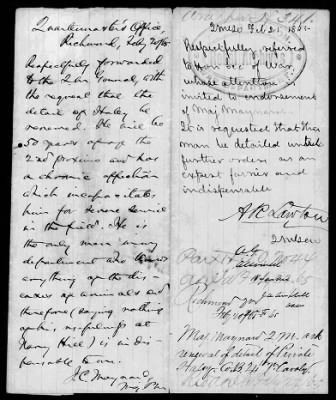 Quartermaster's Office
Richmond, Feby 20/65
Respectfully forwarded
to the Qr Mr General, with
the request that the
detail of Haley be
renewed. He will be
50 years of age the
2nd proximo and has
a chronic affection
which incapacitates
him for severe service
in the field. He is
the only man in my
department who knows
anything of the dis-
eases of animals and
therefore (saying nothing
of his usefulness at
Camp Hill) is in dis-
pensable to me.
J C Maynard
Maj & QM
QMGO Feb 21 1865
Respectfully referred
to Hon Sec of War
whose attention is
invited to endorsement
of Maj Maynard.
It is requested that this
man be detailed until
further orders as an
expert farrier and
indispensable
A R Lawton
QM Gen
Richmond
Feby 20th 65
Maj. Maynard Q.M. ask
renewal of detail of Private
Haley Co B 24 Va